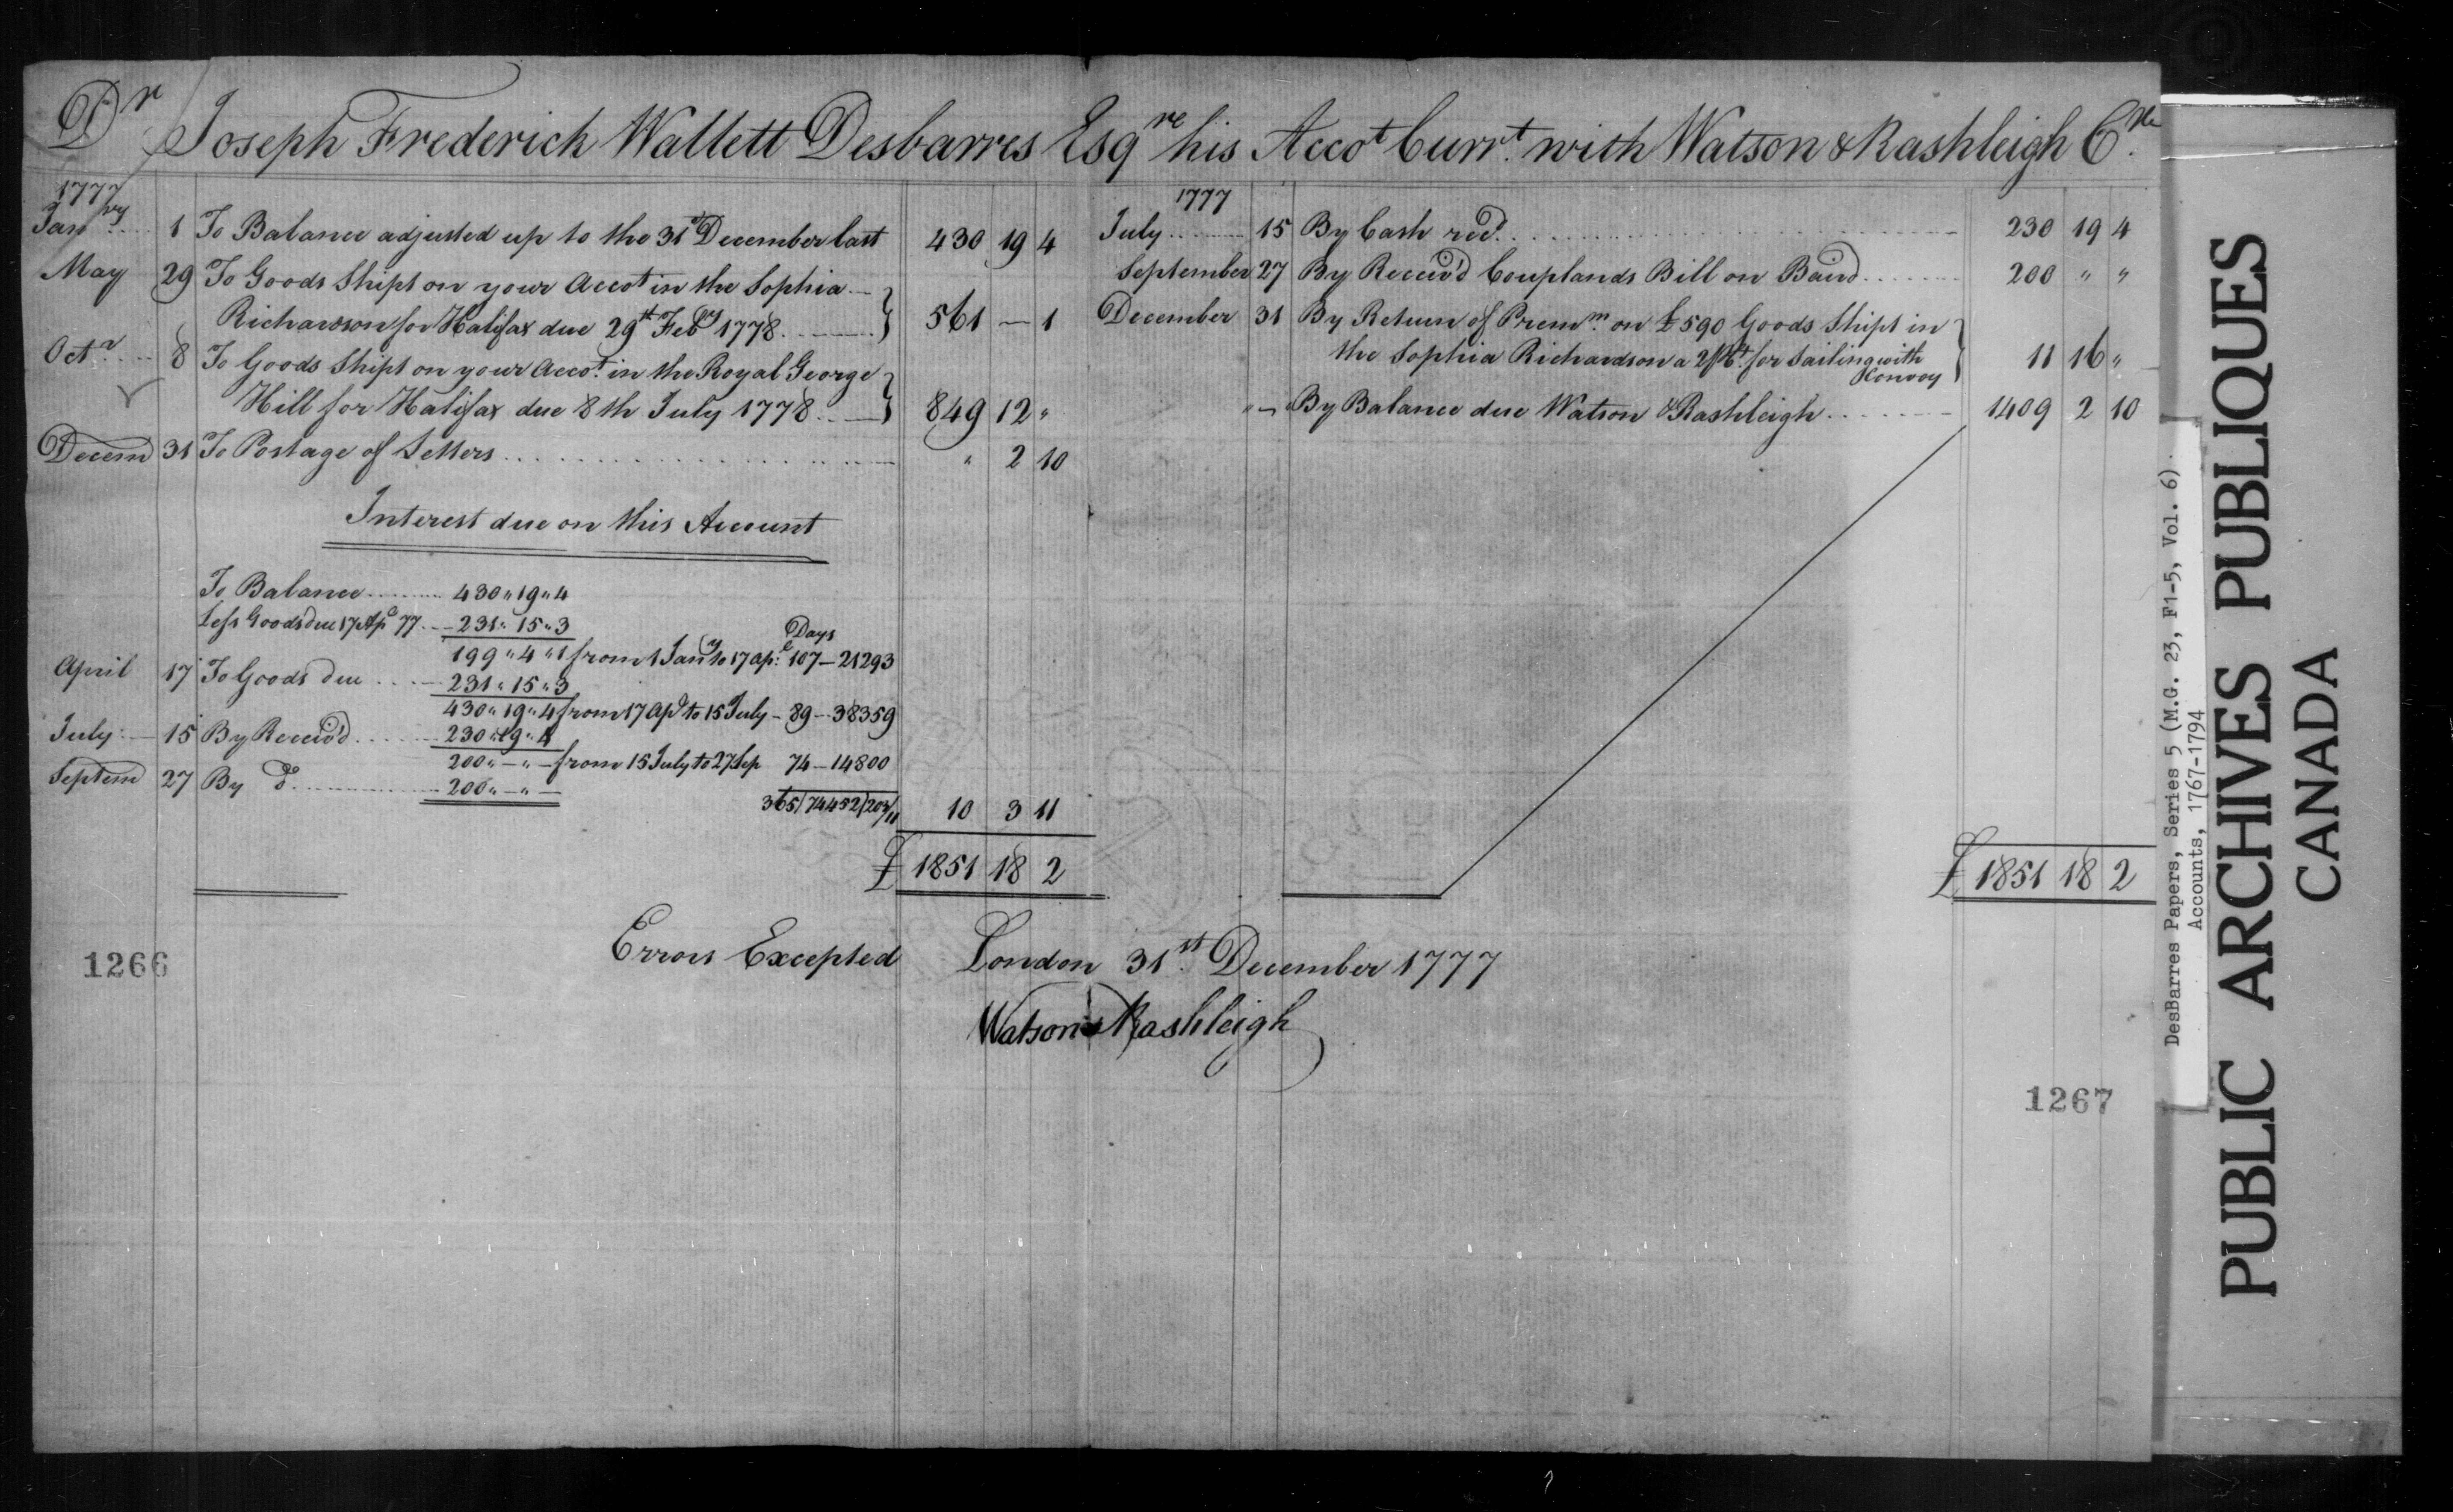 Dr Joseph Frederick Wallett Desbarres Esqre his Accot Currt. with Watson & Rashleigh Cr.
1777
Janry. 1 To Balance adjusted up to the 31st December last 430 19 4
May 29 To Goods Shipt on your Accot in the Sophia
Richardson for Halifax due 29th Feby 1778 561 — 1
Octr. 8 To Goods Shipt on your Accot. in the Royal George
Hill for Halifax due 8th July 1778 849 12 "
Decem 31 To Postage of Letters " 2 10
Interest due on this Account
To Balance 430 " 19 " 4
Less Goods due 17 Apl 77 231 " 15 " 3
Days
199 " 4 " 1 from 1 Jany to 17 apl: 107 – 21293
April 17 To Goods due 231 " 15 " 3
430 " 19 " 4 from 17 Apl to 15 July – 89 – 38359
July 15 By Receiv'd 230 " 19 " 4
200 " – " – from 15 July to 27 Sep 74 – 14800
Septem 27 By Do. 200 " – " –
365/74452/203/11 10 3 11
£ 1851 18 2
1777
July 15 By Cash recd. 230 19 4
September 27 By Receiv'd Couplands Bill on Baird 200 " "
December 31 By Return of Premm. on £590 Goods Shipt in
the Sophia Richardson a 2 PCt. for Sailing with
Konvoy 11 16 "
" – By Balance due Watson & Rashleigh 1409 2 10
£ 1851 18 2
Errors Excepted London 31st. December 1777
Watson & Rashleigh
1266
1267
DesBarres Papers, Series 5 (M.G. 23, F1-5, Vol. 6)
Accounts, 1767-1794
PUBLIC ARCHIVES PUBLIQUES
CANADA